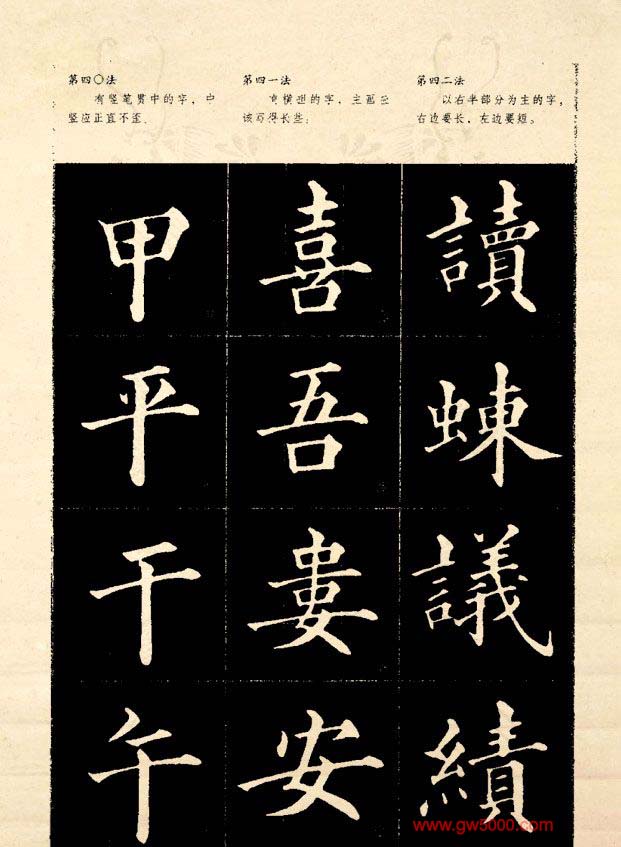 第四〇法
有竖笔贯中的字，中
竖应正直不歪.
第四一法
横 的字，主画应
该写得长些。
第四二法
以右半部分为主的字，
右边要长，左边要短。
甲 喜 讀
平 吾 蝀
干 婁 議
午 安 績
www.gw5000.com